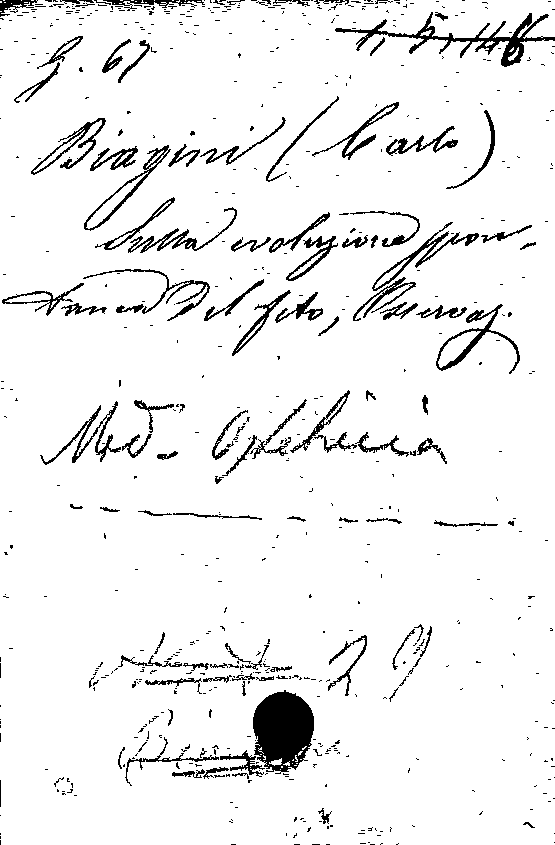 G. 67
1, 5, 146
Biagini (Carlo)
Sulla evoluzione spon-
tanea del feto, Osservaz.
Med. Ostetricia
29